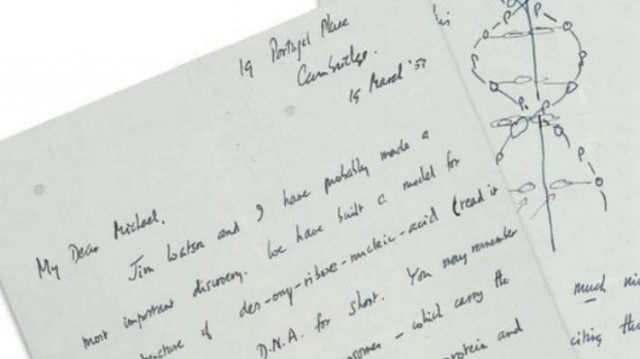 19 Portugal Place
Cambridge.
19 March '53
My Dear Michael,
Jim Watson and I have probably made a
most important discovery. We have built a model for
structure of des-oxy-ribose-nucleic-acid (read it
D.N.A. for short. You may remember
- which carry the
protein and
is
P P
P P
P
P
P P
much
citing